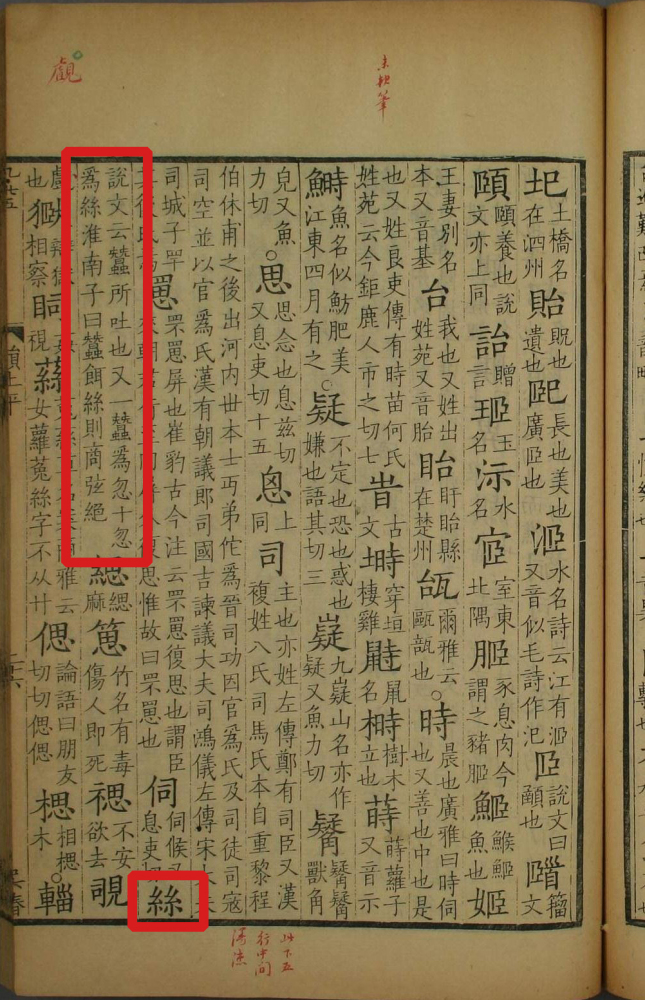 圯土橋名在泗州貽貺也遺也巸長也美也廣𦣞也洍水名詩云江有洍又音似毛詩作汜𦣞說文曰顄也籀文
頤頤養也說文亦上同詒贈言玉名沶水名宧室東北隅𦛗豕息肉今謂之豬𦛗䱌鯸䱌魚也姬
王妻別名本又音基台我也又姓出姓苑又音胎眙盱眙縣在楚州瓵爾雅云甌瓿也○時晨也廣雅曰時伺也又善也中也是
也又姓良吏傳有時苗何氏姓苑云今鉅鹿人市之切七旹古文塒穿垣棲雞鼭鼠名榯樹木立也蒔蒔蘿子又音示
鰣魚名似魴肥美江東四月有之○疑不定也恐也惑也嫌也語其切三嶷九嶷山名亦作疑又魚力切觺觺觺獸角
皃又魚力切○思思念也息兹切又息吏切十五恖上同司主也亦姓左傳鄭有司臣又漢複姓八氏司馬氏本自重黎程
伯休甫之後出河内世本士丏弟佗爲晉司功因官爲氏及司徒司寇司空並以官爲氏漢有朝議郎司國吉諫議大夫司鴻儀左傳宋大夫
司城子罕其後氏焉罳罘罳屏也崔豹古今注云罘罳復思也謂臣來朝君行至門屏外復思惟故曰罘罳也伺伺候又息吏切絲
說文云蠶所吐也又一蠶爲忽十忽爲絲淮南子曰蠶餌絲則商弦絕緦緦麻𥳠竹名有毒傷人即死禗不安欲去覗
也辨獄相察視蕬爾雅云女蘿菟絲字不从艹偲論語曰朋友切切偲偲楒相楒木○輜
觀
此下五行中間漫漶